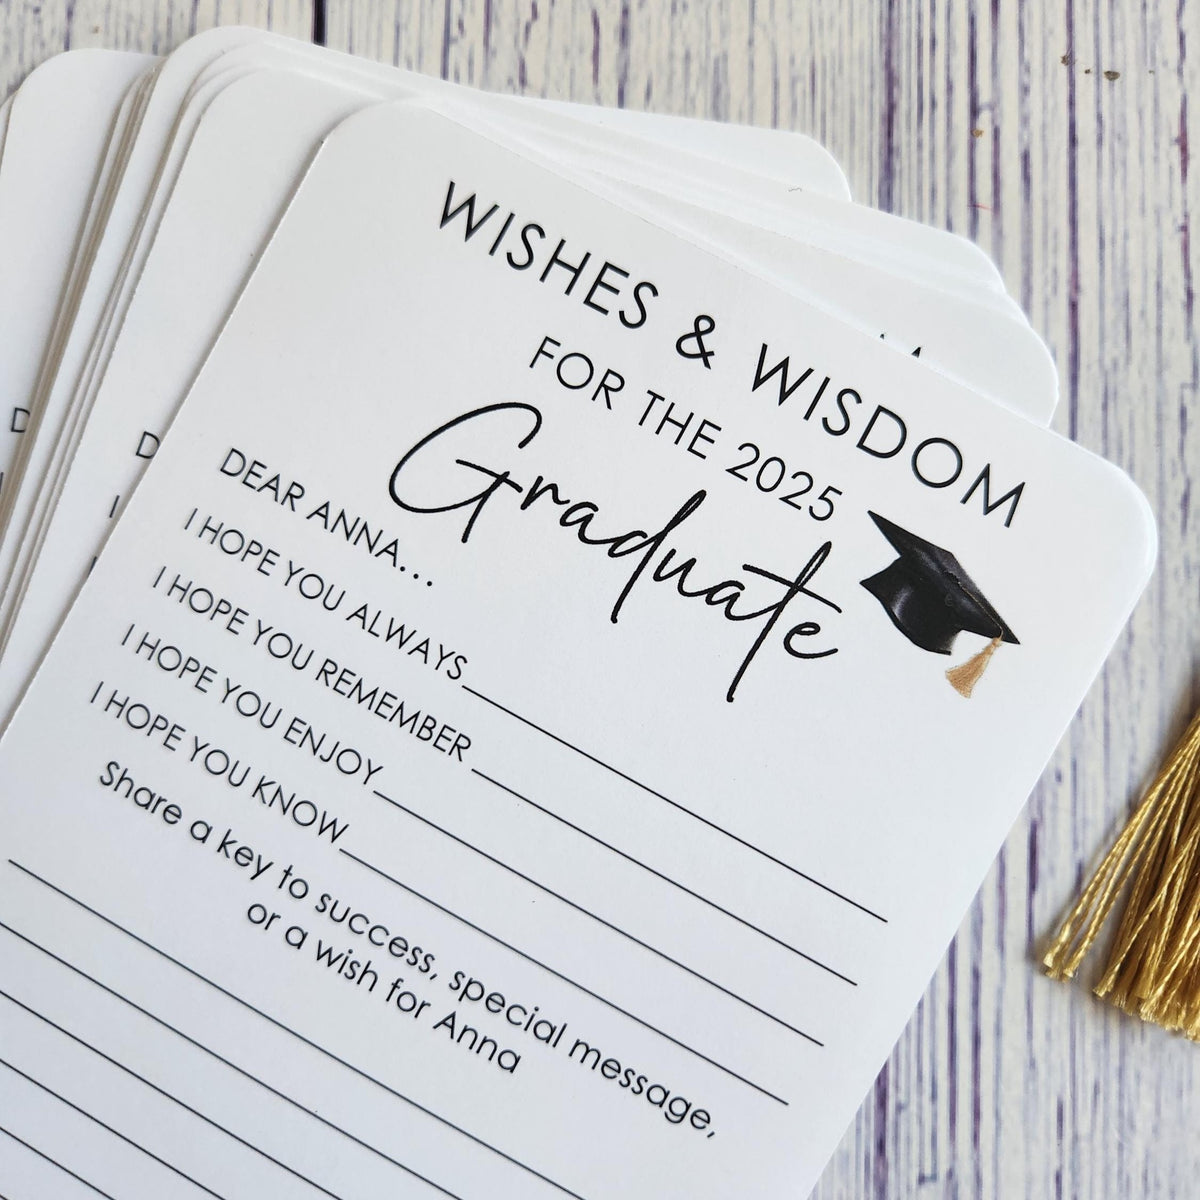 WISHES & WISDOM
FOR THE 2025
Graduate
DEAR ANNA...
I HOPE YOU ALWAYS
I HOPE YOU REMEMBER
I HOPE YOU ENJOY
I HOPE YOU KNOW
Share a key to success, special message,
or a wish for Anna